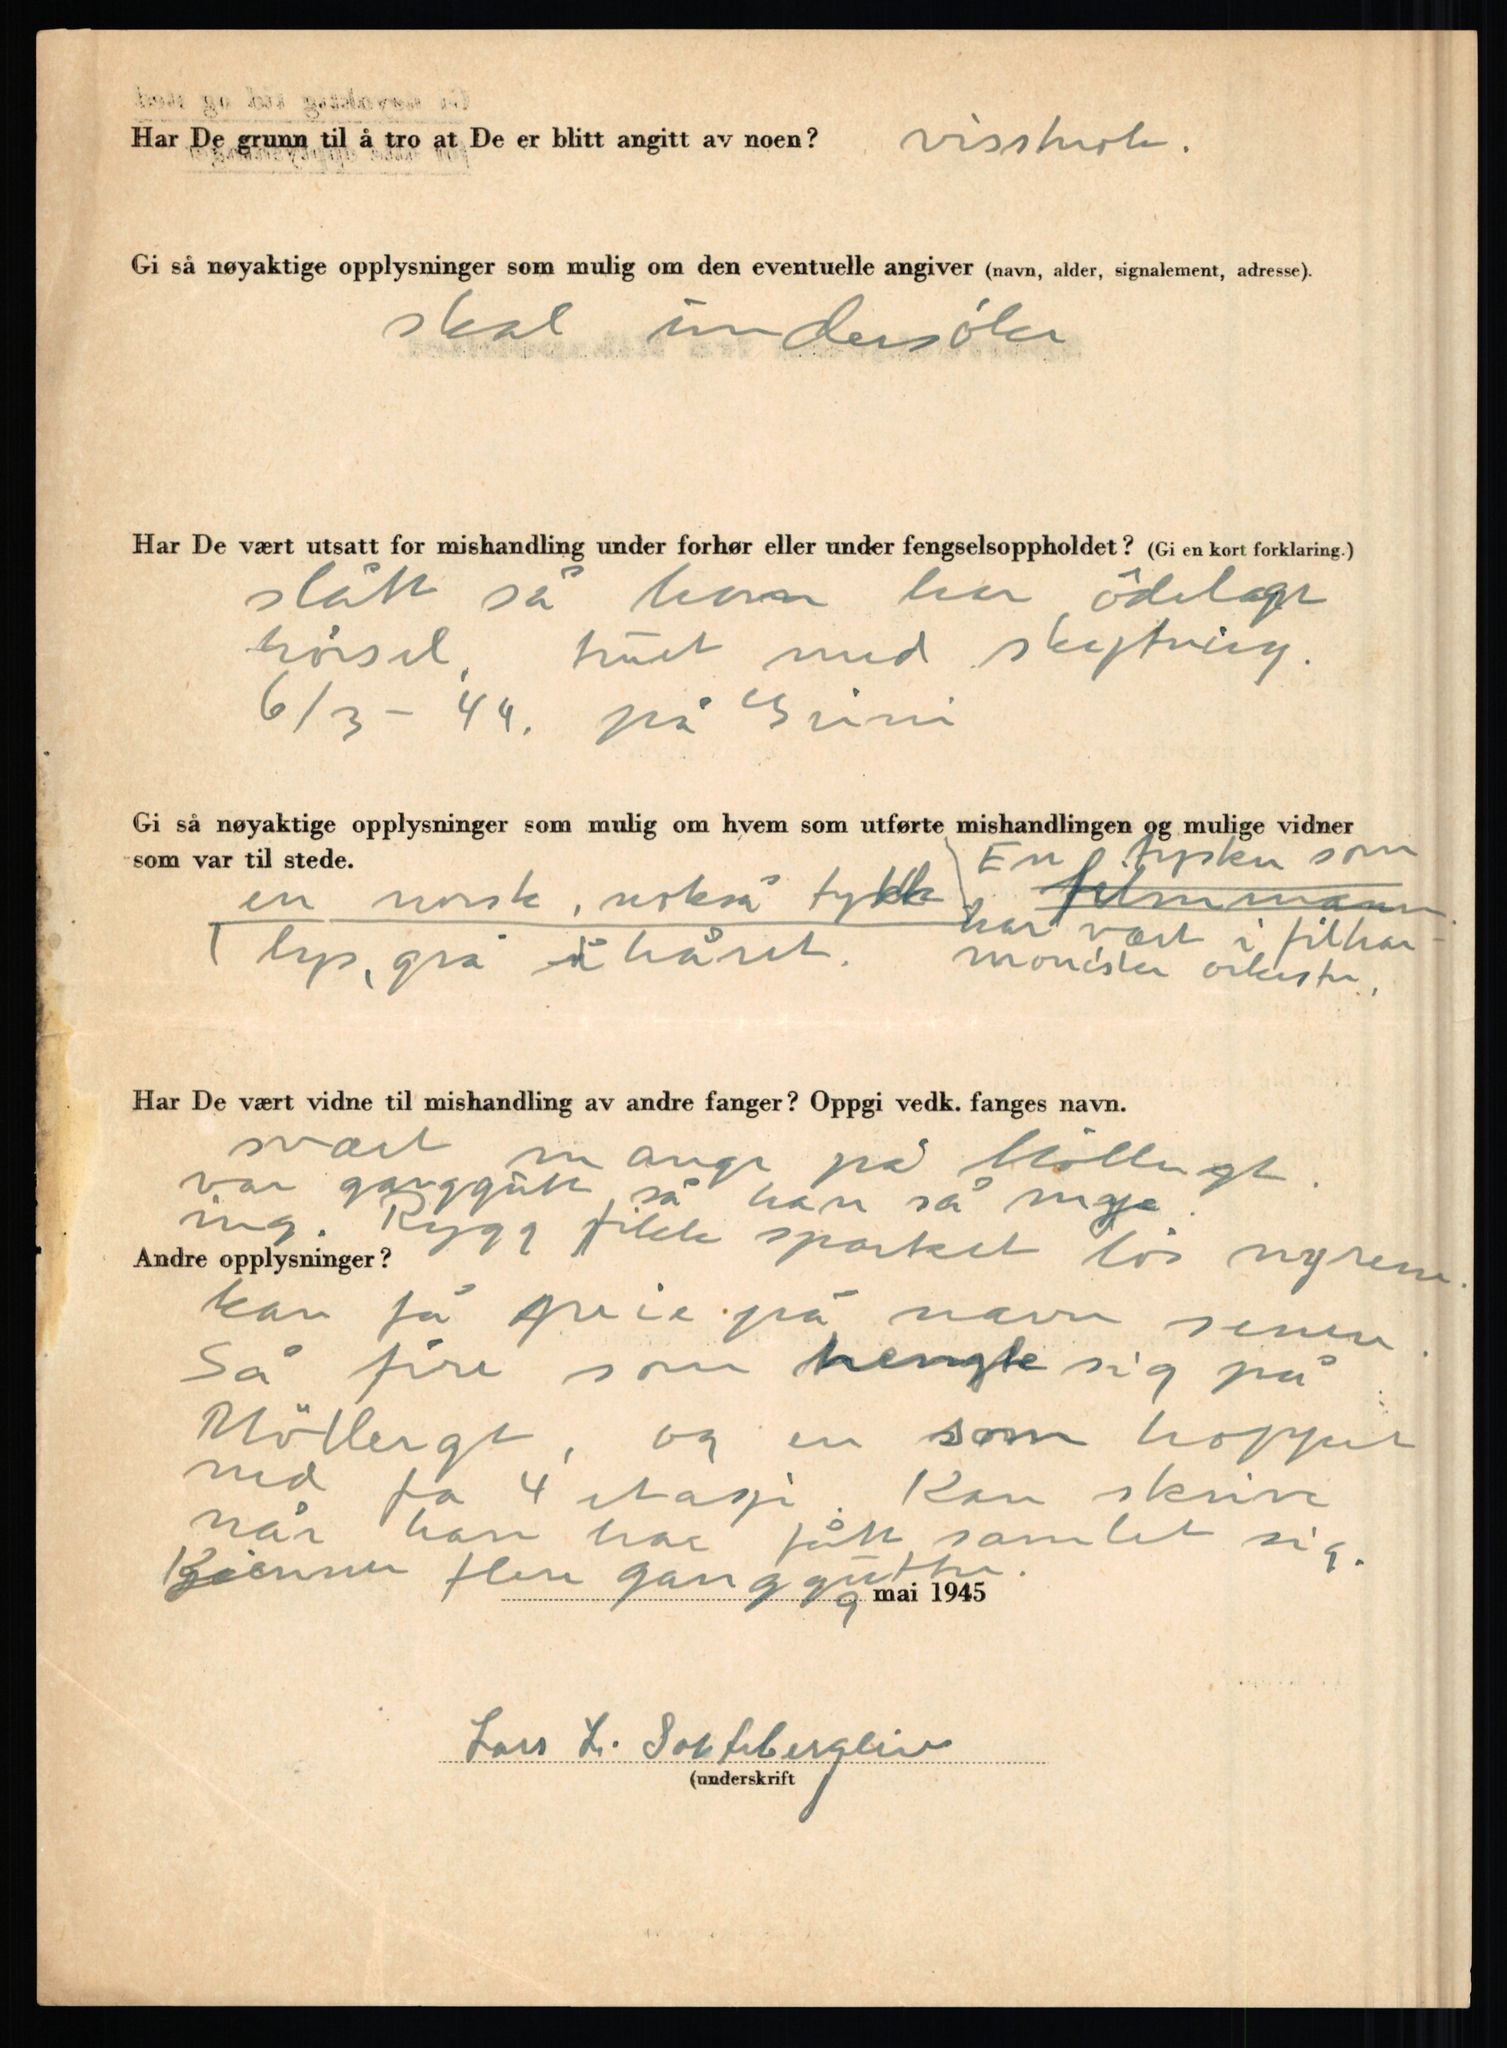 Har De grunn til å tro at De er blitt angitt av noen? visstnok.
Gi så nøyaktige opplysninger som mulig om den eventuelle angiver (navn, alder, signalement, adresse).
skal undersöke
Har De vært utsatt for mishandling under forhør eller under fengselsoppholdet? (Gi en kort forklaring.)
slått så han har ödelagt
hörsel, truet med skytning.
6/3-44. på Grini
Gi så nøyaktige opplysninger som mulig om hvem som utførte mishandlingen og mulige vidner
som var til stede.
en norsk, nokså tykk
lys, grå i håret.
En tysker som
filmmann
har vært i filhar-
moniske orkester,
Har De vært vidne til mishandling av andre fanger? Oppgi vedk. fanges navn.
svært mange på Möllergt.
var ganggutt, så han så mye.
ing. Rygg fikk sparket lös nyrene.
Andre opplysninger?
kan få greie på navn senere.
Så fire som hengte sig på
Möllergt, og en som hoppet
ned fra 4 etasje. Kan skrive
når han har fått samlet sig.
Kjenner flere ganggutter.
9 mai 1945
Lars L.
(underskrift